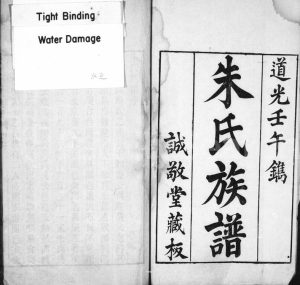 Tight Binding
Water Damage
道光壬午鐫
朱氏族譜
誠敬堂藏板